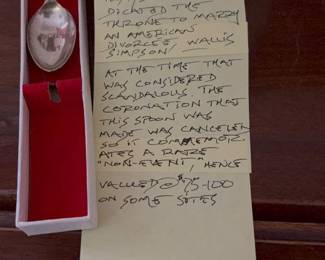 DICATED THE
THRONE TO MARRY
AN AMERICAN
DIVORCEE, WALLIS
SIMPSON,
AT THE TIME THAT
WAS CONSIDERED
SCANDALOUS. THE
CORONATION THAT
THIS SPOON WAS
MADE WAS CANCELEN
SO IT COMMEMOR
ATES A RARE
"NON-EVENT", HENCE
VALUED @ $75-100
ON SOME SITES